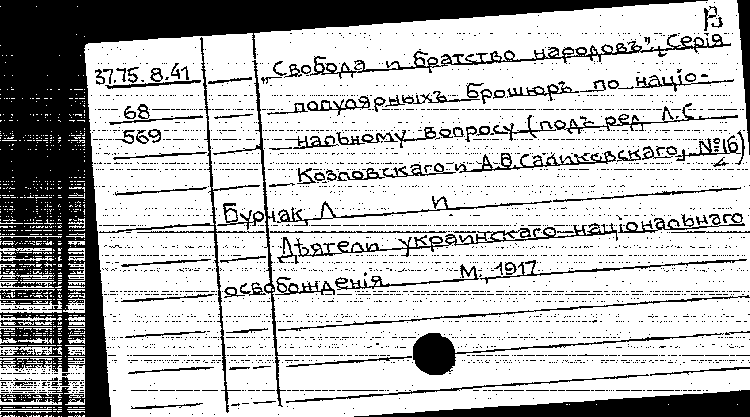 В
37.75.8.41 „Свобода и братство народовъ". Серія
68 популярныхъ брошюръ по націо-
569 нальному вопросу (подъ ред. Л.С.
Козловскаго и А.Ѳ.Саликовскаго, №16)
Бурчак, Л. И.
Дѣятели украинскаго національнаго
освобожденія М., 1917